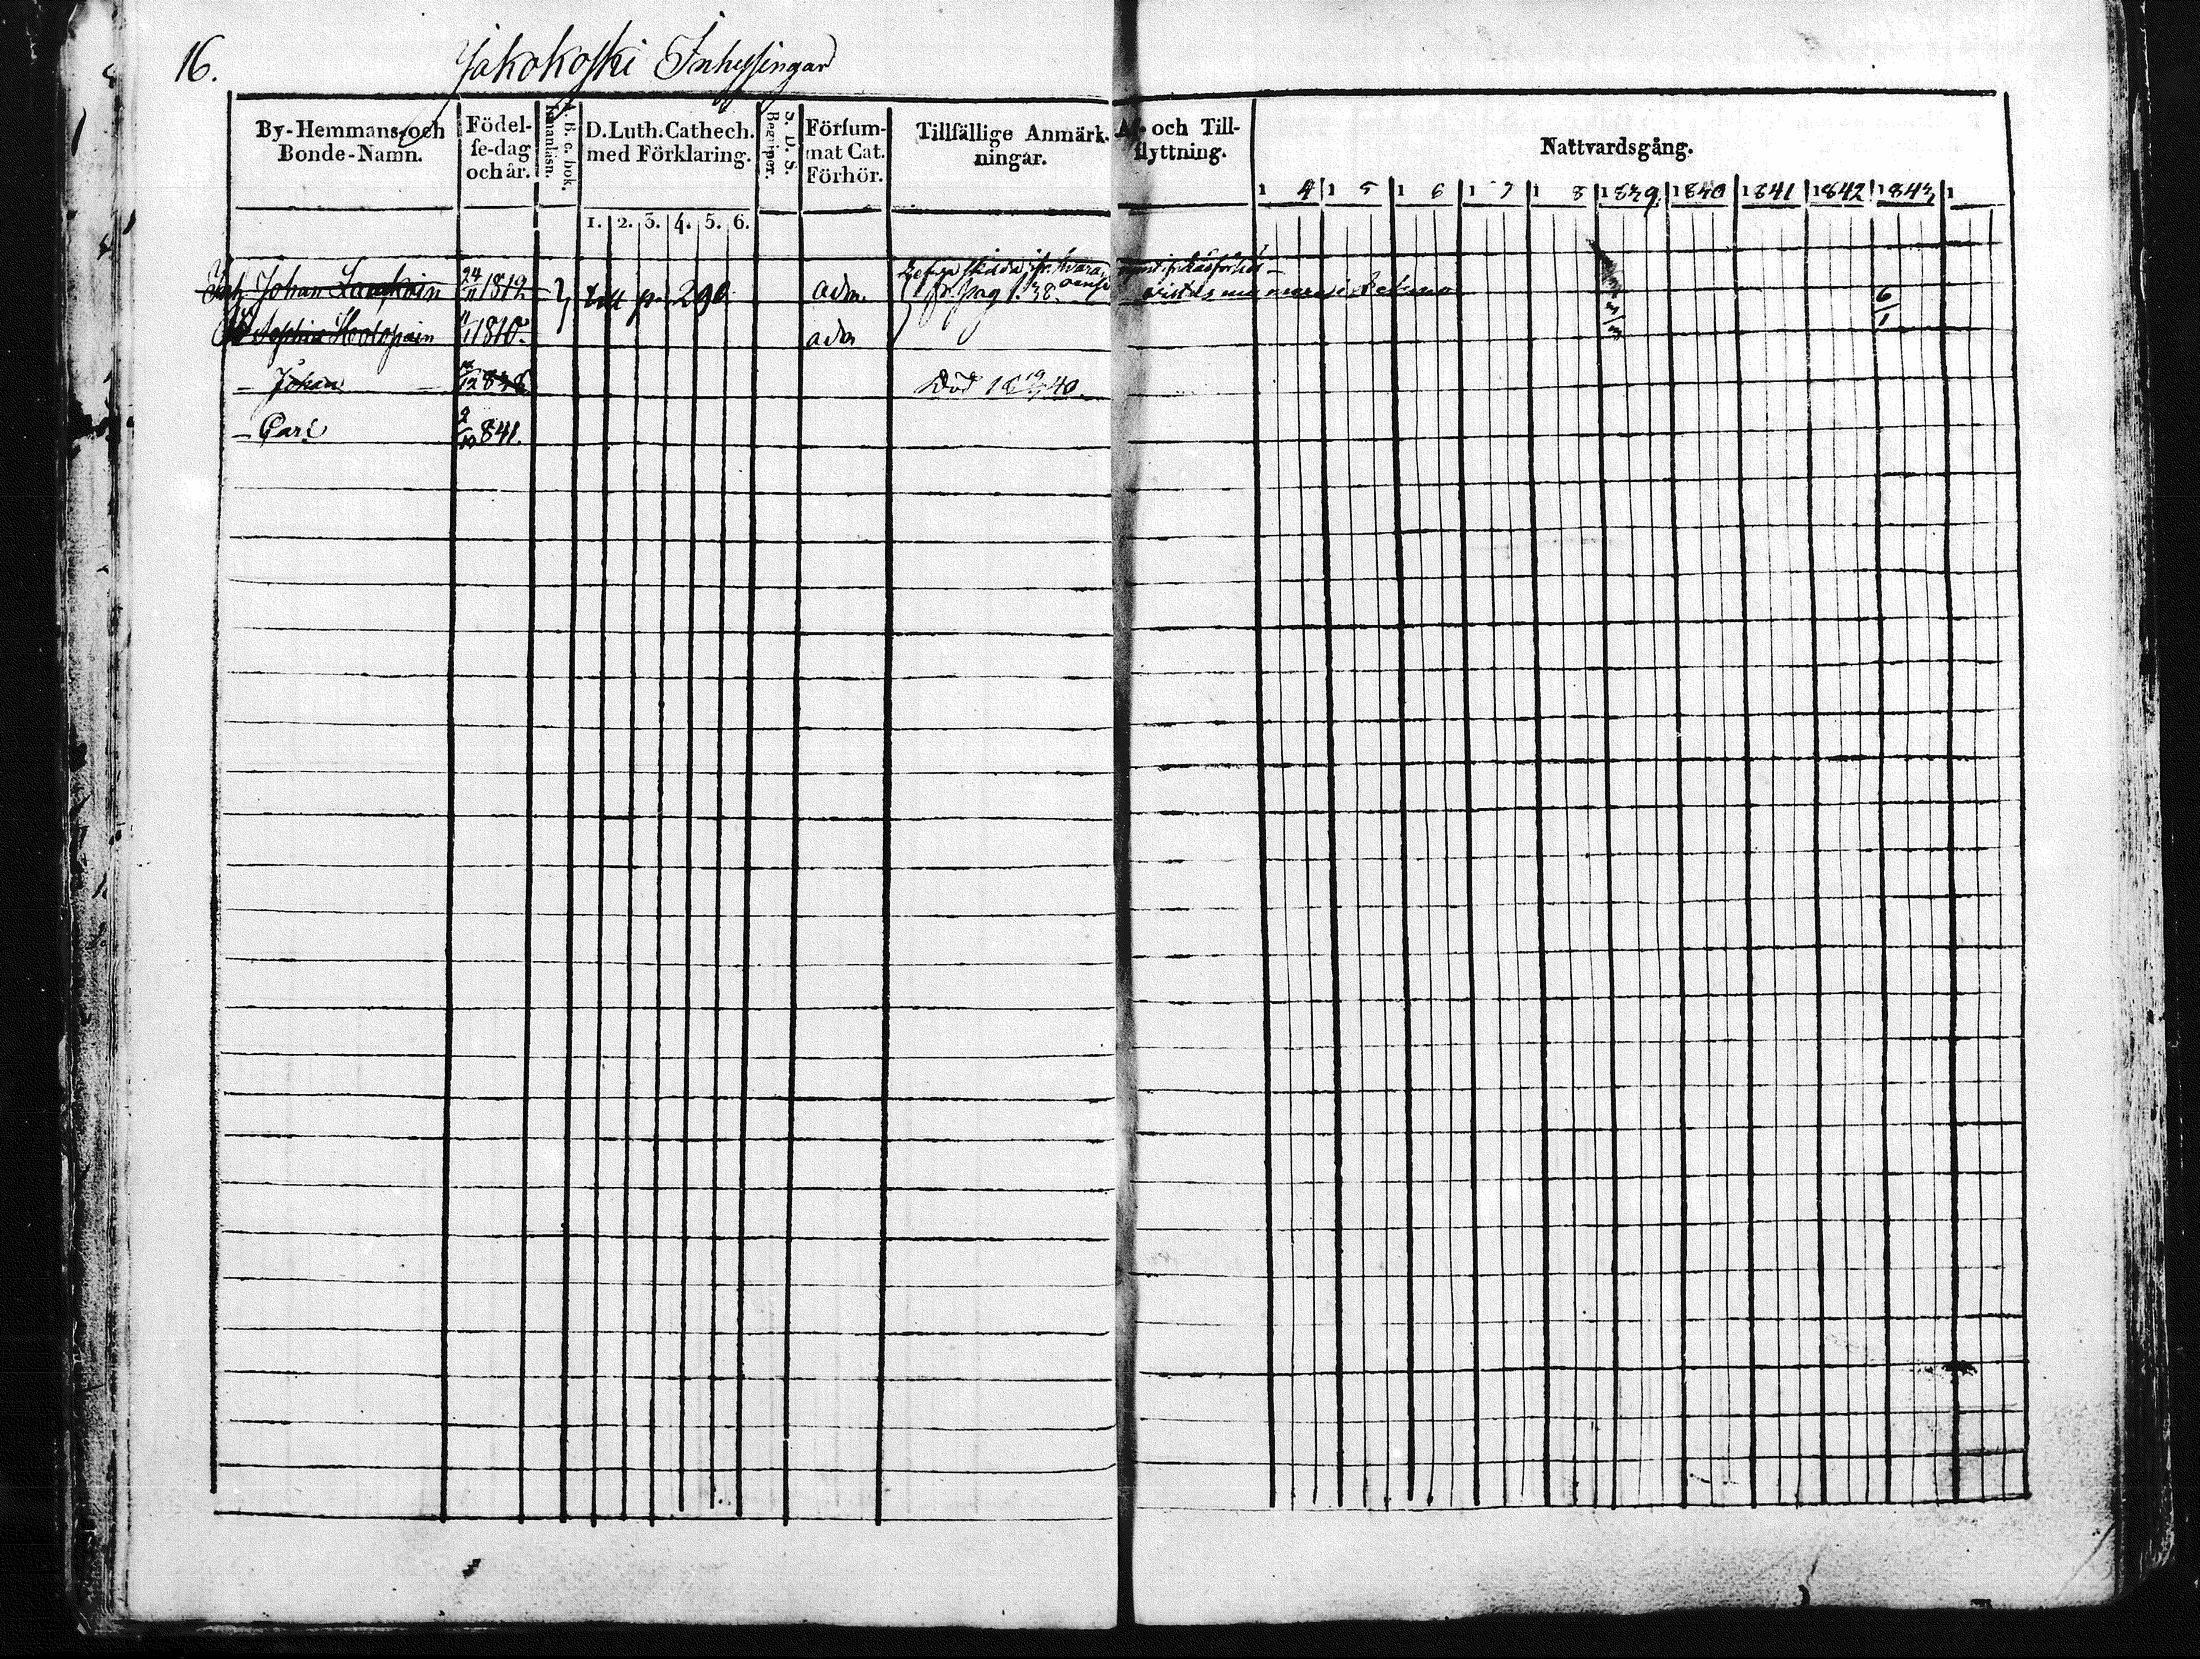 16. Jakokoski Inhysingar
By-Hemmans-och Bonde-Namn.
Födel-se-dag och år.
A. B. c. bok. Innanläsn.
D. Luth. Cathech. med Förklaring.
1. 2. 3. 4. 5. 6.
S. D. S. Begriper.
Försum-mat Cat. Förhör.
Tillfällige Anmärk-ningar.
Af- och Till-flyttning.
Nattvardsgång.
1 4 1 5 1 6 1 7 1 8 1839 1840 1841 1842 1843 1
Inh Johan 24/11 1812 till p. 290 adm.
6/1
Sophia 11/11 1810 adm
- Johan 838 Död 18 19/ 40.
- Carl 9/10 841.